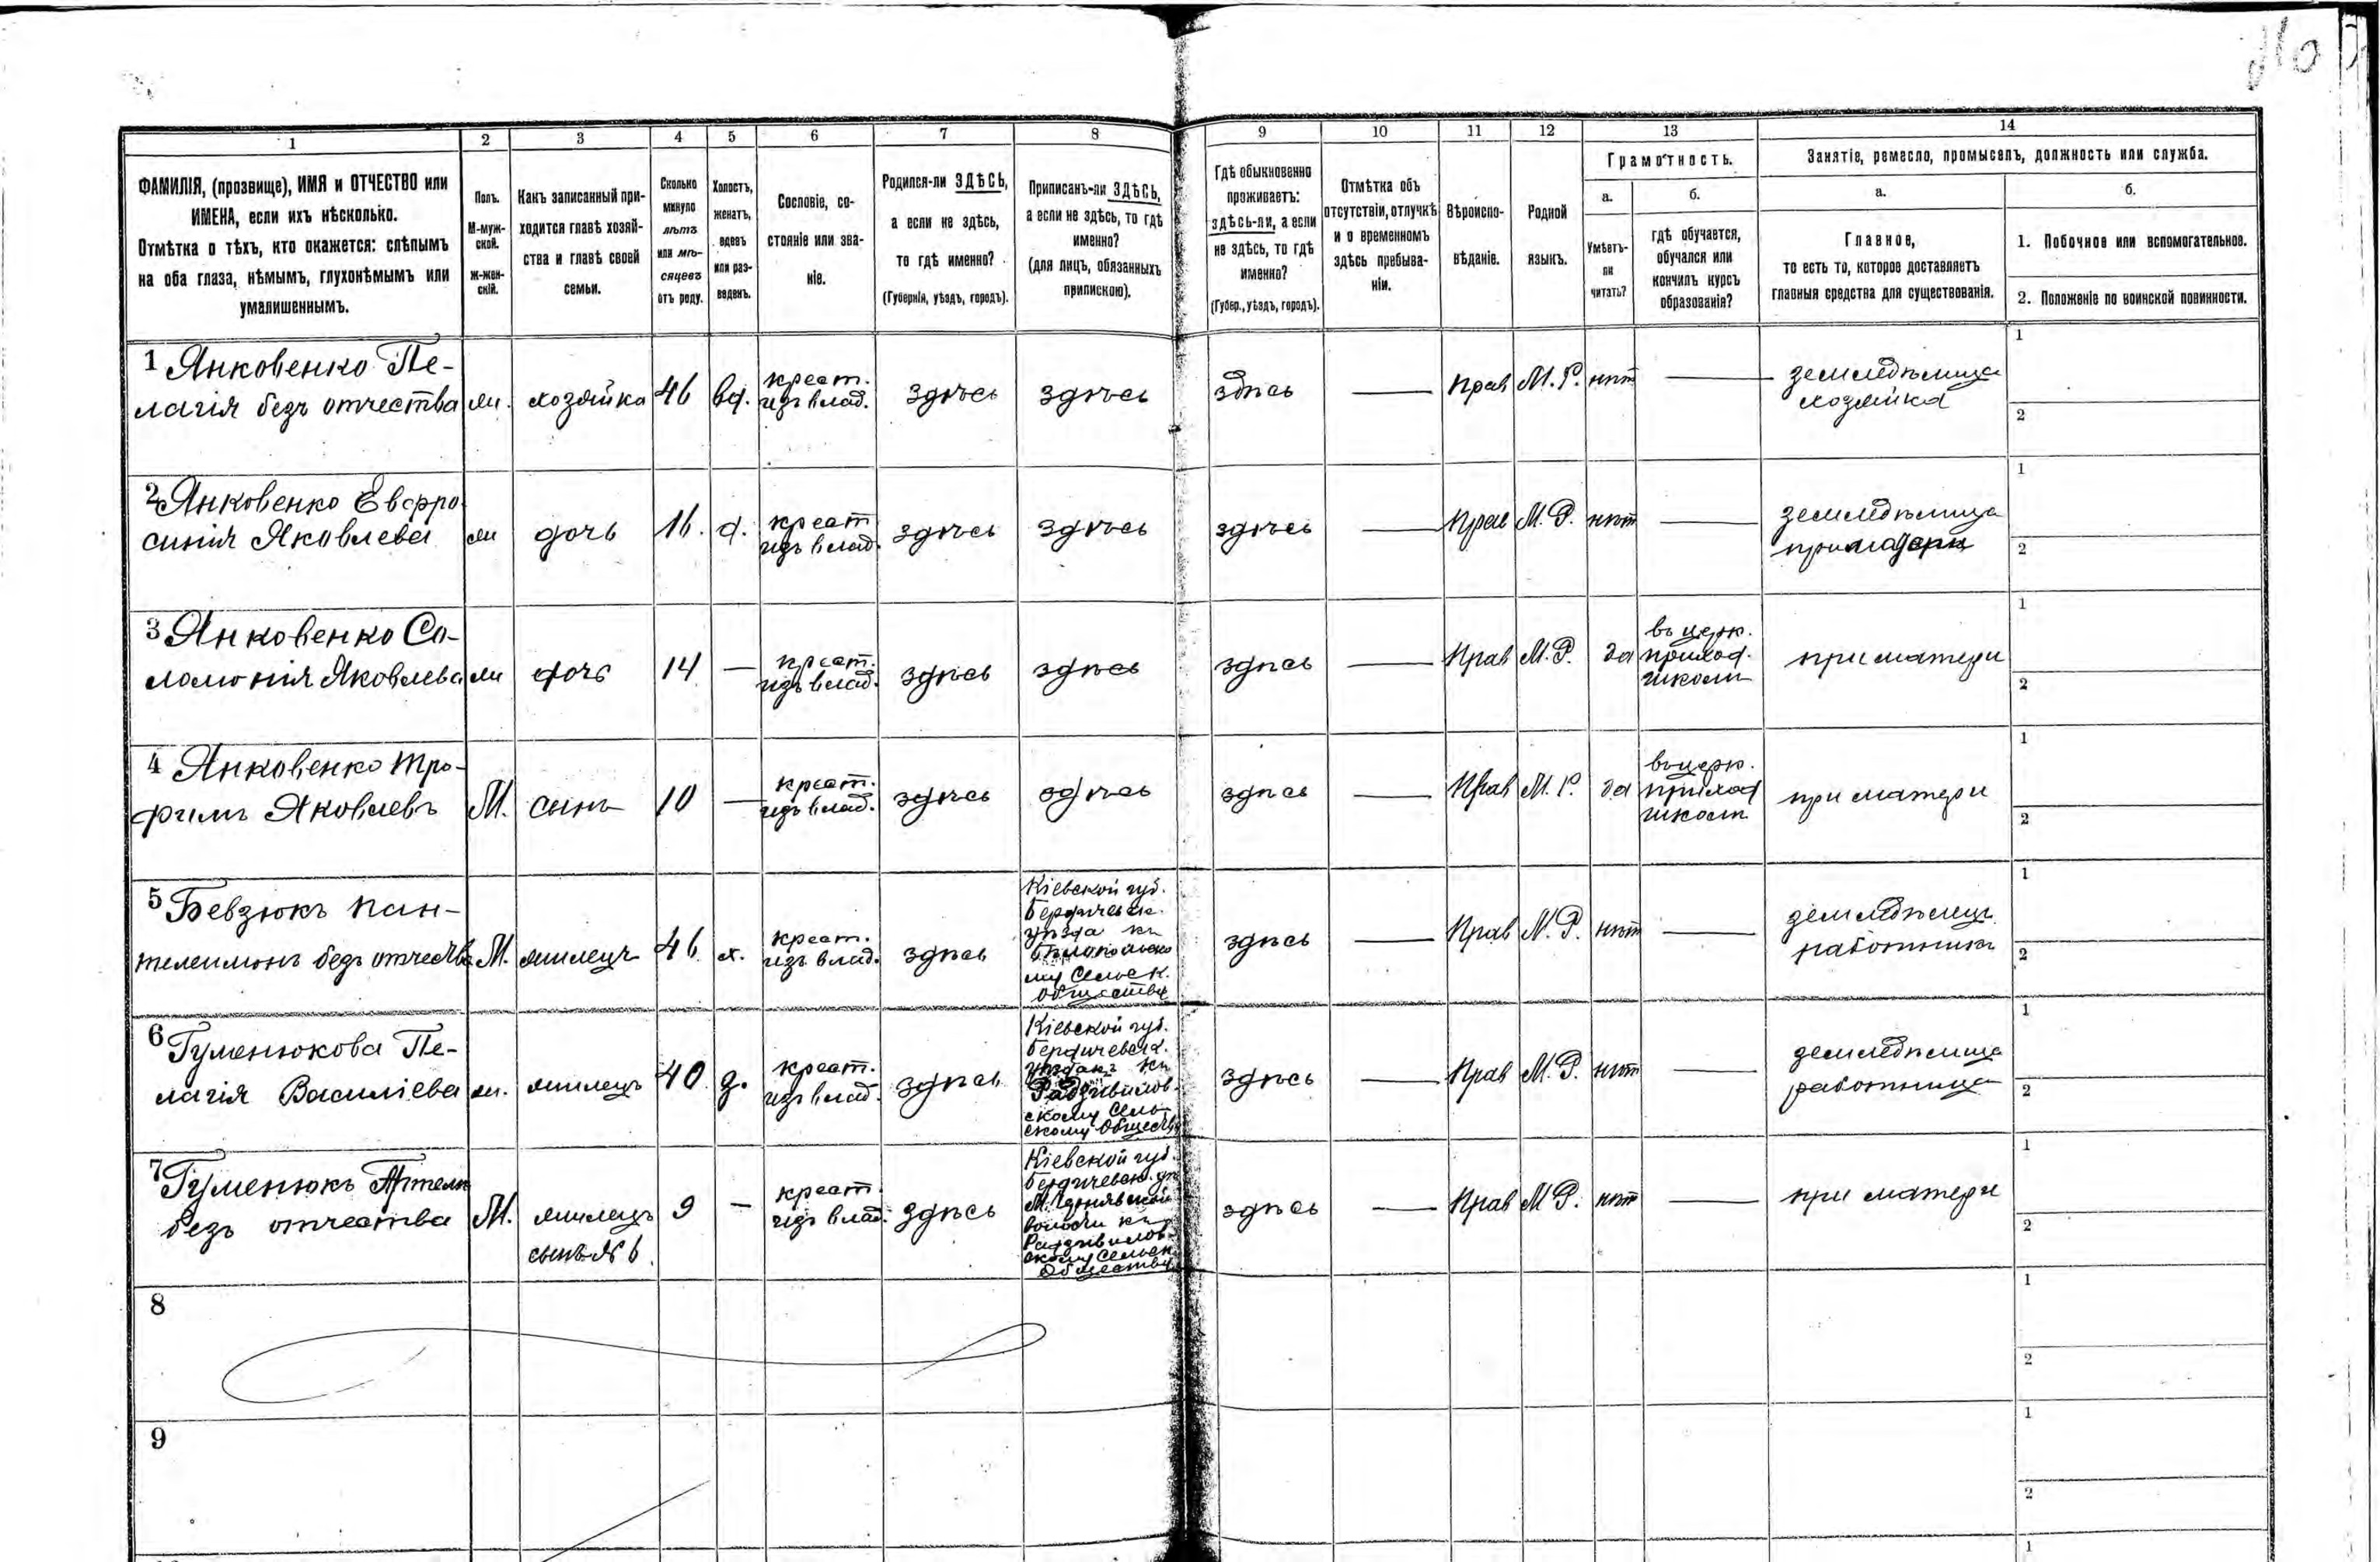 1 2 3 4 5 6 7 8 9 10 11 12 13 14
ФАМИЛІЯ, (прозвище), ИМЯ и ОТЧЕСТВО или
ИМЕНА, если ихъ нѣсколько.
Отмѣтка о тѣхъ, кто окажется: слѣпымъ
на оба глаза, нѣмымъ, глухонѣмымъ или
умалишеннымъ.
Полъ.
М-муж-
ской.
Ж-жен-
скій.
Какъ записанный при-
ходится главѣ хозяй-
ства и главѣ своей
семьи.
Сколько
минуло
лѣтъ
или мѣ-
сяцевъ
отъ роду.
Холостъ,
женатъ,
вдовъ
или раз-
веденъ.
Сословіе, со-
стояніе или зва-
ніе.
Родился-ли ЗДѢСЬ,
а если не здѣсь,
то гдѣ именно?
(Губернія, уѣздъ, городъ).
Приписанъ-ли ЗДѢСЬ,
а если не здѣсь, то гдѣ
именно?
(для лицъ, обязанныхъ
припискою).
Гдѣ обыкновенно
проживаетъ:
здѣсь-ли, а если
не здѣсь, то гдѣ
именно?
(Губер., уѣздъ, городъ).
Отмѣтка объ
отсутствіи, отлучкѣ
и о временномъ
здѣсь пребыва-
ніи.
Вѣроиспо-
вѣданіе.
Родной
языкъ.
Грамотность.
а. б.
Умѣетъ-
ли
читать?
гдѣ обучается,
обучался или
кончилъ курсъ
образованія?
Занятіе, ремесло, промыселъ, должность или служба.
а. б.
Главное,
то есть то, которое доставляетъ
главныя средства для существованія.
1. Побочное или вспомогательное.
2. Положеніе по воинской повинности.
1 Янковенко Пе-
лагія безъ отчества
ж. хозяйка 46 вд.
крест.
изъ влад.
здѣсь здѣсь здѣсь — Прав М. Р. нѣт —
земледѣлица
хозяйка
1
2
2 Янковенко Евфро
синія Яковлева
ж дочь 16. д.
крест
изъ влад.
здѣсь здѣсь здѣсь — Прав М. Р. нѣт —
земледѣлица
при матери
1
2
3 Янковенко Со-
ломонія Яковлева
ж дочь 14 —
крест.
изъ влад.
здѣсь здѣсь здѣсь — Прав М. Р. да
въ церк.
приход.
школѣ
при матери
1
2
4 Янковенко Тро-
фимъ Яковлевъ
М. сынъ 10 —
крест.
изъ влад.
здѣсь здѣсь здѣсь — Прав М. Р. да
въ церк.
приход
школѣ
при матери
1
2
5 Бевзюкъ Пан-
телеимонъ безъ отчества
М. жилецъ 46 х.
крест.
изъ влад.
здѣсь
Кіевской губ.
Бердичевск.
уѣзда къ
Бѣлопольско
му Сельск.
Обществу
здѣсь — Прав М. Р. нѣт —
земледѣлецъ
работникъ
1
2
6 Гуменюкова Пе-
лагія Василіева
ж. жилецъ 40 д.
крест.
изъ влад.
здѣсь
Кіевской губ.
Бердичевск.
къ
Радзивилов-
скому Сель-
скому Обществу
здѣсь — Прав М. Р. нѣт —
земледѣлица
работница
1
2
7 Гуменюкъ Артемъ
безъ отчества
М. жилецъ 9 —
сынъ № 6.
крест.
изъ влад.
здѣсь
Кіевской губ.
Бердичевск. уѣ
волости къ
Радзивилов-
скому Сельск
Обществу
здѣсь — Прав М. Р. нѣт —
при матери
1
2
8
1
2
9
1
2
1